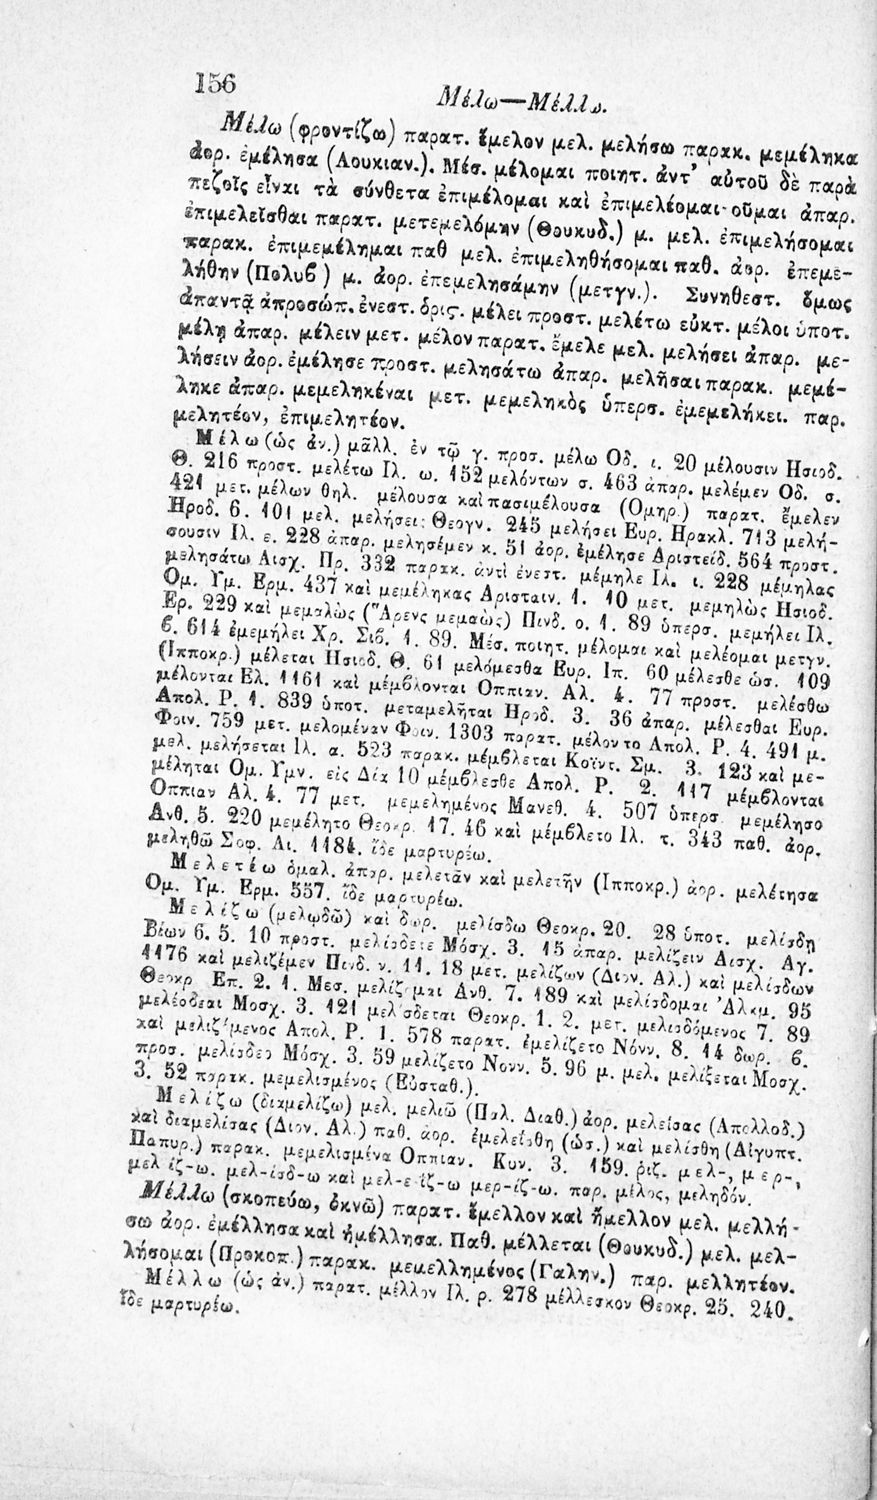 156
Μέλω—Μέλλω.
Μέλω (φροντίζω) παρατ. ἔμελον μελ. μελήσω παρακ. μεμέληκα
ἀορ. ἐμέλησα (Λουκιαν.). Μέσ. μέλομαι ποιητ. ἀντ' αὐτοῦ δὲ παρὰ
πεζοῖς εἶναι τὰ σύνθετα ἐπιμέλομαι καὶ ἐπιμελέομαι-οῦμαι ἀπαρ.
ἐπιμελεῖσθαι παρατ. μετεμελόμην (Θουκυδ.) μ. μελ. ἐπιμελήσομαι
παρακ. ἐπιμεμέλημαι παθ μελ. ἐπιμεληθήσομαι παθ. ἀορ. ἐπεμε-
λήθην (Πολυβ) μ. ἀορ. ἐπεμελησάμην (μετγν.). Συνηθεστ. ὅμως
ἁπαντᾷ ἀπροσώπ. ἐνεστ. ὁρις. μέλει προστ. μελέτω εὐκτ. μέλοι ὑποτ.
μέλῃ ἀπαρ. μέλειν μετ. μέλον παρατ. ἔμελε μελ. μελήσει ἀπαρ. με-
λήσειν ἀορ. ἐμέλησε προστ. μελησάτω ἀπαρ. μελῆσαι παρακ. μεμέ-
ληκε ἀπαρ. μεμεληκέναι μετ. μεμεληκὸς ὑπερσ. ἐμεμελήκει. παρ.
μελητέον, ἐπιμελητέον.
Μέλω (ὡς ἀν.) μᾶλλ. ἐν τῷ γ. προσ. μέλω Οδ. ι. 20 μέλουσιν Ησιοδ.
Θ. 216 προστ. μελέτω Ιλ. ω. 152 μελόντων σ. 463 ἀπαρ. μελέμεν Οδ. σ.
421 μετ. μέλων θηλ. μέλουσα καὶ πασιμέλουσα (Ομηρ.) παρατ. ἔμελεν
Ηροδ. 6. 101 μελ. μελήσει: Θεογν. 245 μελήσει Ευρ. Ηρακλ. 713 μελή-
σουσιν Ιλ. ε. 228 ἀπαρ. μελησέμεν κ. 51 ἀορ. ἐμέλησε Αριστείδ. 564 προστ.
μελησάτω Αισχ. Πρ. 332 παρακ. ἀντὶ ἐνεστ. μέμηλε Ιλ. ι. 228 μέμηλας
Ομ. Υμ. Ερμ. 437 καὶ μεμέληκας Αρισταιν. 1. 10 μετ. μεμηλὼς Ησιοδ.
Ερ. 229 καὶ μεμαλὼς (Ἄρενς μεμαὼς) Πινδ. ο. 1. 89 ὑπερσ. μεμήλει Ιλ.
β. 614 ἐμεμήλει Χρ. Σιβ. 1. 89. Μέσ. ποιητ. μέλομαι καὶ μελέομαι μετγν.
(Ιπποκρ.) μέλεται Ησιοδ. Θ. 61 μελόμεσθα Ευρ. Ιπ. 60 μέλεσθε ὡσ. 109
μέλονται Ελ. 1161 καὶ μέμβλονται Οππιαν. Αλ. 4. 77 προστ. μελέσθω
Απολ. Ρ. 1. 839 ὑποτ. μεταμελῆται Ηροδ. 3. 36 ἀπαρ. μέλεσθαι Ευρ.
Φοιν. 759 μετ. μελομέναν Φοιν. 1303 παρατ. μέλοντο Απολ. Ρ. 4. 491 μ.
μελ. μελήσεται Ιλ. α. 523 παρακ. μέμβλεται Κοϊντ. Σμ. 3. 123 καὶ με-
μέληται Ομ. Υμν. εἰς Δία 10 μέμβλεσθε Απολ. Ρ. 2. 117 μέμβλονται
Οππιαν Αλ. 4. 77 μετ. μεμελημένος Μανεθ. 4. 507 ὑπερσ μεμέλησο
Ανθ. 5. 220 μεμέλητο Θεοκρ 17. 46 καὶ μέμβλετο Ιλ. τ. 343 παθ. ἀορ.
μεληθῶ Σοφ. Αι. 1184. ἴδε μαρτυρέω.
Μελετέω ὁμαλ. ἀπαρ. μελετᾶν καὶ μελετῆν (Ιπποκρ.) ἀορ. μελέτησα
Ομ. Υμ. Ερμ. 557. ἴδε μαρτυρέω.
Μελίζω (μελῳδῶ) καὶ δωρ. μελίσδω Θεοκρ. 20. 28 ὑποτ. μελίσδῃ
Βίων 6. 5. 10 προστ. μελίσδετε Μόσχ. 3. 15 ἀπαρ. μελίζειν Αισχ. Αγ.
1176 καὶ μελιζέμεν Πινδ. ν. 11. 18 μετ. μελίζων (Διον. Αλ.) καὶ μελίσδων
Θεοκρ Επ. 2. 1. Μεσ. μελίζομαι Ανθ. 7. 189 καὶ μελίσδομαι Ἀλκμ. 95
μελέσδεαι Μοσχ. 3. 121 μελίσδεται Θεοκρ. 1. 2. μετ. μελισδόμενος 7. 89
καὶ μελιζόμενος Απολ. Ρ. 1. 578 παρατ. ἐμελίζετο Νόνν. 8. 14 δωρ. β.
προσ. μελίσδεο Μόσχ. 3. 59 μελίζετο Νονν. 5. 96 μ. μελ. μελίξεται Μοσχ.
3. 52 παρακ. μεμελισμένος (Εὐσταθ.).
Μελίζω (διαμελίζω) μελ. μελιῶ (Παλ. Διαθ.) ἀορ. μελείσας (Απολλοδ.)
καὶ διαμελίσας (Διον. Αλ.) παθ. ἀορ. ἐμελείσθη (ὡσ.) καὶ μελίσθη (Αἰγυπτ.
Παπυρ.) παρακ. μεμελισμένα Οππιαν. Κυν. 3. 159. ῥιζ. μελ-, μερ-,
μελ ίζ-ω. μελ-ίσδ-ω καὶ μελ-ε ΐζ-ω μερ-ίζ-ω. παρ. μέλος, μεληδόν.
Μέλλω (σκοπεύω, ὀκνῶ) παρατ. ἔμελλον καὶ ἤμελλον μελ. μελλή-
σω ἀορ. ἐμέλλησα καὶ ἠμέλλησα. Παθ. μέλλεται (Θουκυδ.) μελ. μελ-
λήσομαι (Προκοπ.) παρακ. μεμελλημένος (Γαλην.) παρ. μελλητέον.
Μέλλω (ὡς ἀν.) παρατ. μέλλον Ιλ. ρ. 278 μέλλεσκον Θεοκρ. 25. 240.
ἴδε μαρτυρέω.